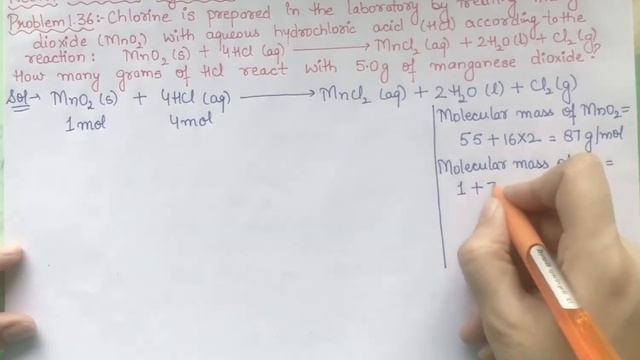 Problem 1.36:- Chlorine is prepared in the laboratory by treating
dioxide (MnO2) with aqueous hydrochloric acid (HCl) according to the
reaction: MnO2 (s) + 4HCl (aq) ⟶ MnCl2 (aq) + 2H2O(l) + Cl2(g)
How many grams of HCl react with 5.0g of manganese dioxide?
Sol→ MnO2 (s) + 4HCl (aq) ⟶ MnCl2 (aq) + 2H2O (l) + Cl2(g)
1mol 4mol
Molecular mass of MnO2=
55+16x2 = 87g/mol
Molecular mass =
1 +